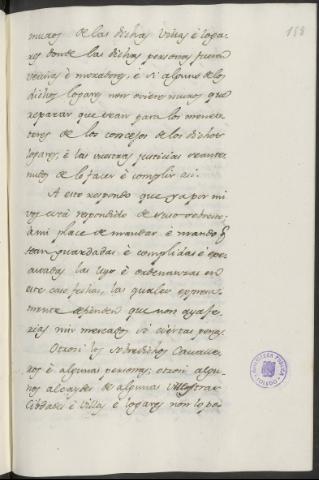 158
muros de las dichas Villas è loga-
res donde las dichas personas fueren
vecinos è moradores, e si algunos de los
dichos logares non oviere muros que
reparar que sean para los menes-
teres de los concejos de los dichos
logares; è las vuestras justicias sean te-
nudos de lo facer è complir asi.
A esto respondo que ya por mi
vos está respondido de suso
a mi place de mandar è mando q
sean guardadas è complidas è exe-
cutadas las leyes è ordenanzas en
este caso fechas, las quales expresa-
mente defienden que non aya fe-
rias nin mercados so ciertas penas.
Otrosi los sobredichos Cavalle-
ros è algunas personas; otrosi algu-
nos alcaydes de algunas
Ciudades è Villas è logares non lo pa-
BIBLIOTECA PUBLICA
TOLEDO